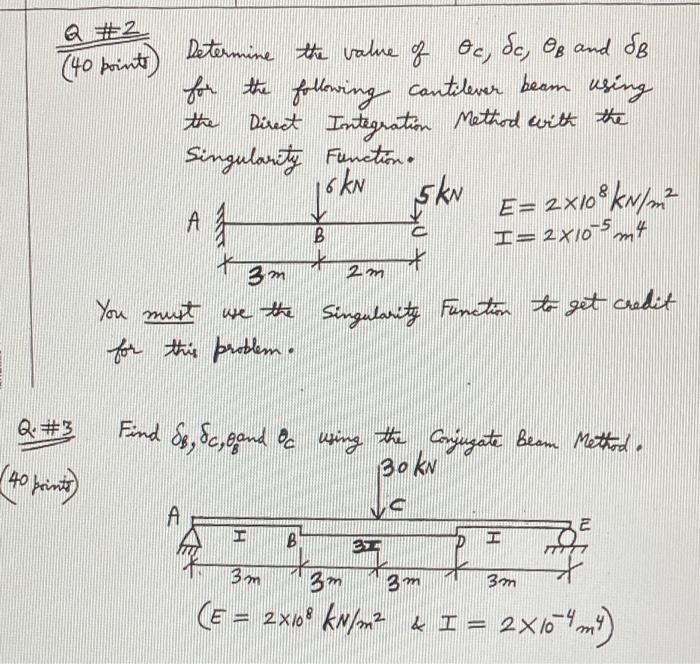 Q #2
(40 points)
Determine the value of θc, δc, θB and δB
for the following cantilever beam using
the Direct Integration Method with the
Singularity Function.
6 kN
5 kN
E = 2×10⁸ kN/m²
A
B
C
I = 2×10⁻⁵ m⁴
3m
2m
You must use the Singularity Function to get credit
for this problem.
Q. #3
Find δB, δc, θB and θc using the Conjugate Beam Method.
(40 points)
30 kN
C
A
E
I
B
3I
D
I
3m
3m
3m
3m
(E = 2×10⁸ kN/m² & I = 2×10⁻⁴ m⁴)